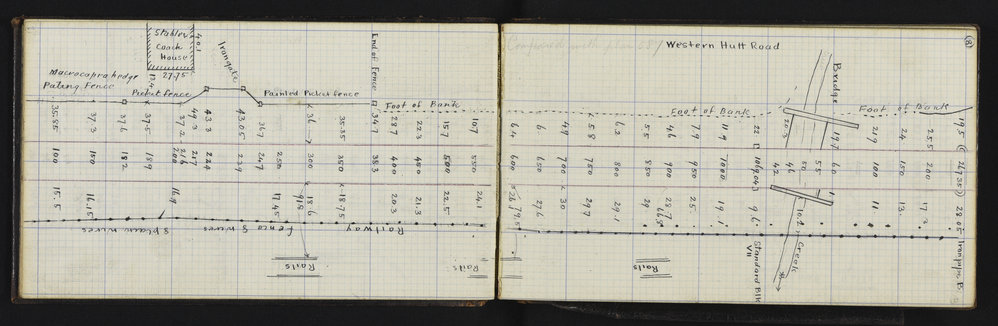 (8)
Compared with plan 58/
Western Hutt Road
Stables
Coach
House
40.1
Irongate
27.75
12.4
Macrocapra hedge
Paling Fence
Picket fence
Painted Picket fence
End of Fence
Foot of Bank
Foot of Bank
Bridge
Foot of Bank
35.85
37.3
37.6
37.5
37.2
49.3
43.3
43.05
36.7
36
35.35
34.7
28.7
22.3
15.7
10.7
6.4
6
4.9
5.8
6.2
5.5
4.6
7.9
11.9
22
22.5
19.7
21.9
24
25.5
19.5
100
150
182
189
208
216
217
224
239
247
250
300
350
383
400
450
500
550
600
650
700
750
800
850
900
950
1000
1049.43
42
46
50
55
60
100
150
200
15.5
16.15
16.9
17.45
918
18.6
18.75
20.3
21.3
22.5
24.1
26
79.5
27.6
30
29.7
29.1
29
28.7
25
19.1
9.6
11
13
17.2
28.55
Iron pipe B5
Standard Blk
VII
Creek
8 plain wires
fence 9 wires
Railway
Rails
Rails
Rails